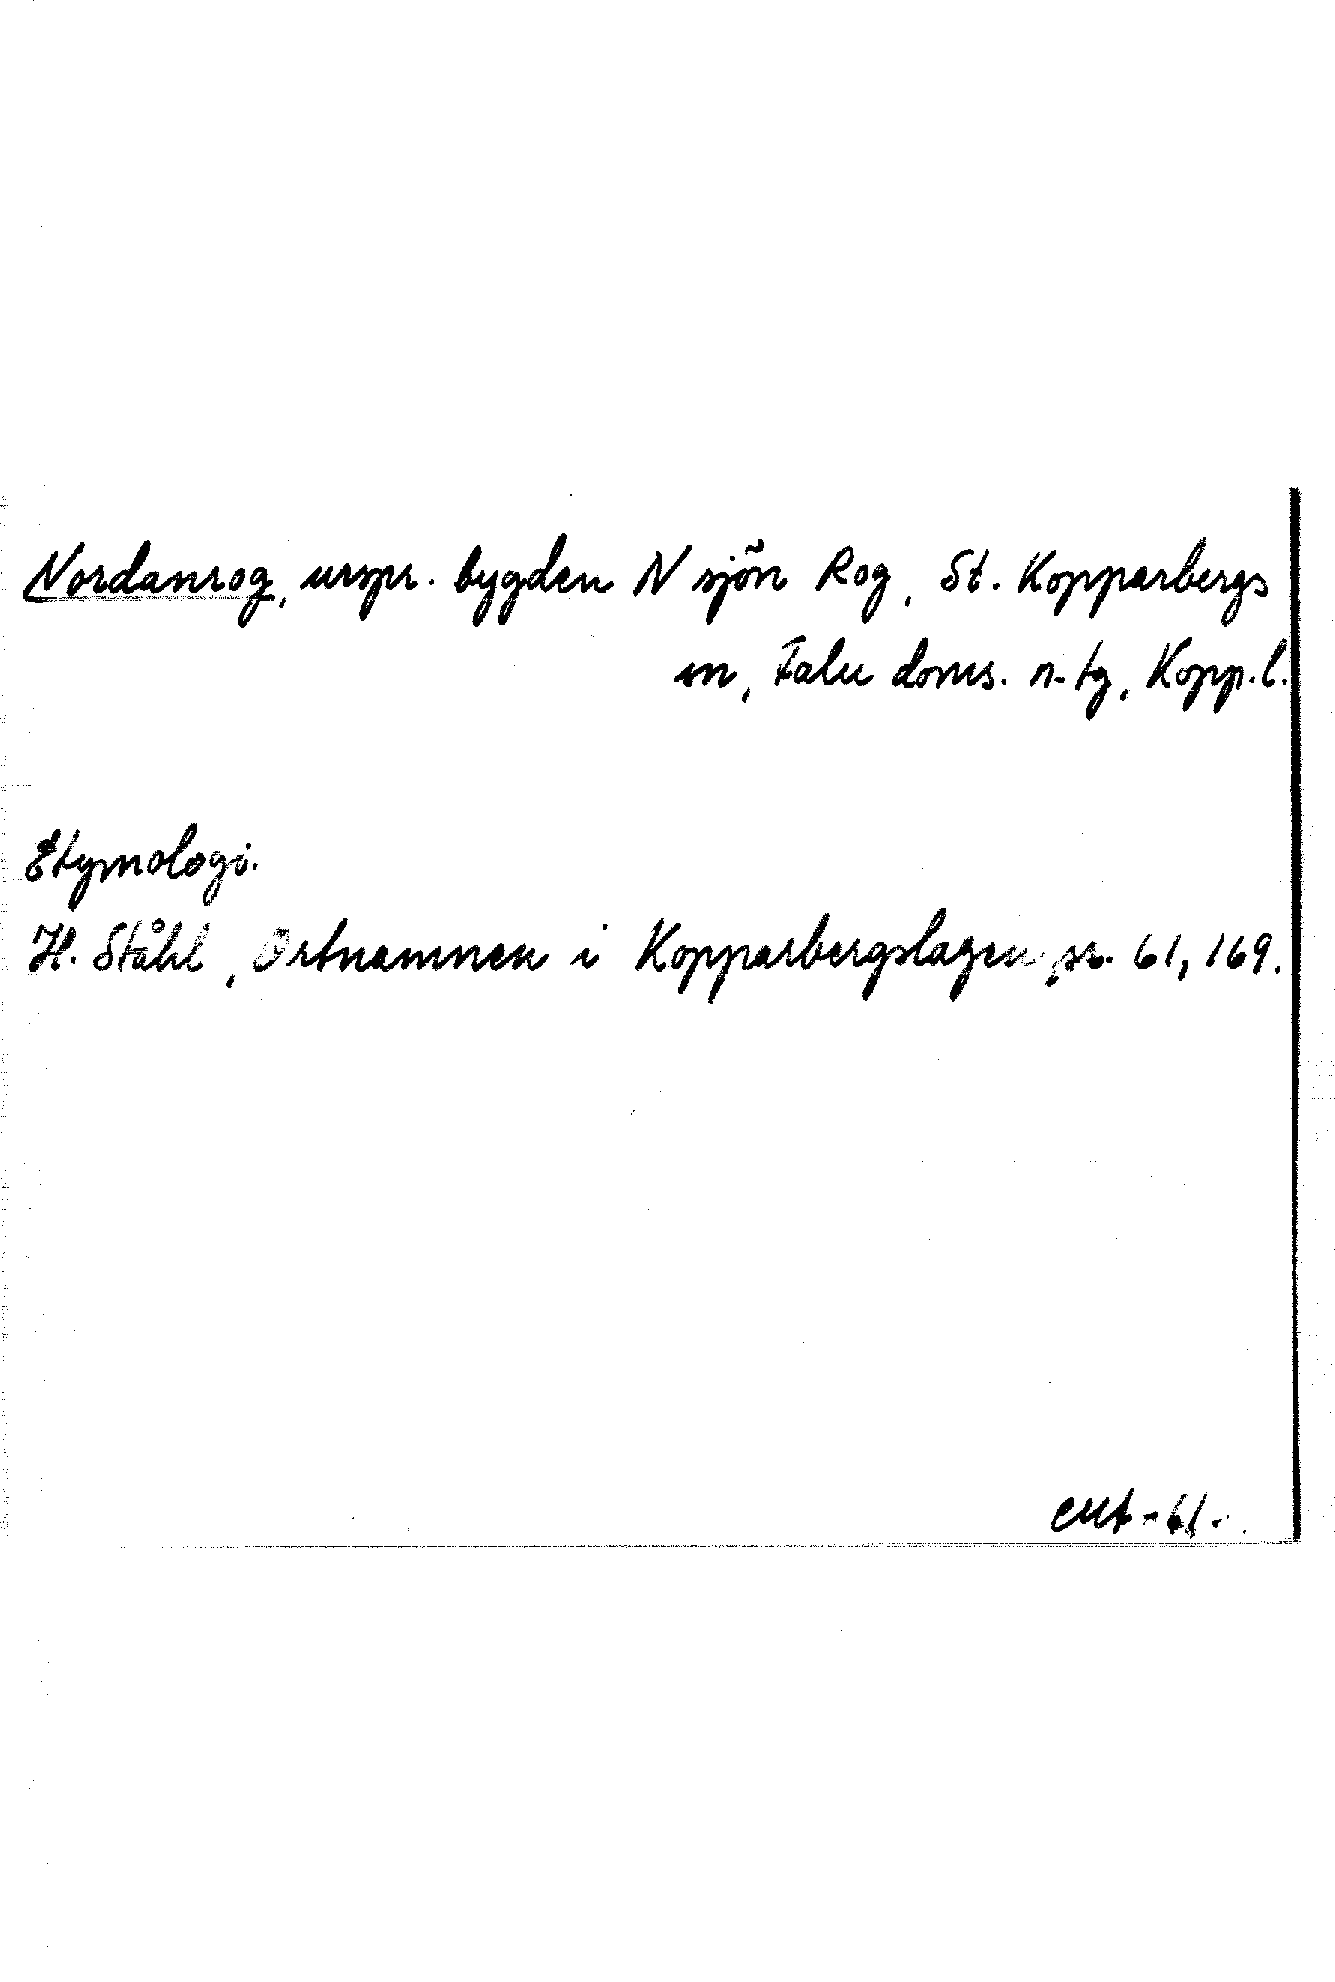 Nordanrog, urspr. bygden N sjön Rog, St. Kopparbergs
sn, Falu doms. n. tg, Kopp.l.
Etymologi.
H. Ståhl, Ortnamnen i Kopparbergslagen, ss. 61, 169.
-61-